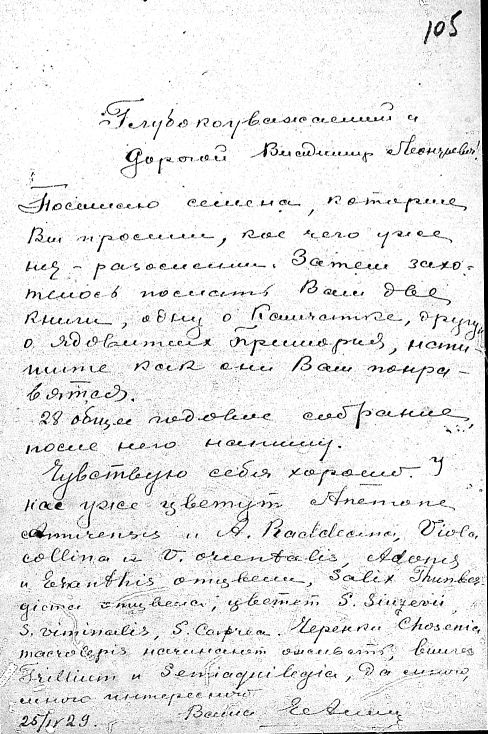 105
Глубокоуважаемый и
дорогой Владимир Леонтьевич!
Посылаю семена, которые
Вы просили, кое чего уже
нет - разослали. Затем захо-
телось послать Вам две
книги, одну о Камчатке, другую
о ядовитых Приморья, напи-
шите как они Вам понра-
вятся.
28 общее годовое собрание,
после него напишу.
Чувствую себя хорошо. У
нас уже цветут Anemone
amurensis и A. Raddeana, Viola
collina и V. orientalis, Adonis
и Eranthis отцвели, Salix Thunber-
giana отцвела, цветет S. Siuzevii,
S. viminalis, S. Caprea. Черенки Chosenia
macrolepis начинают оживать, вылез
Trillium и Semiaquilegia, да много,
много интересного
25/IV 29. Ваша